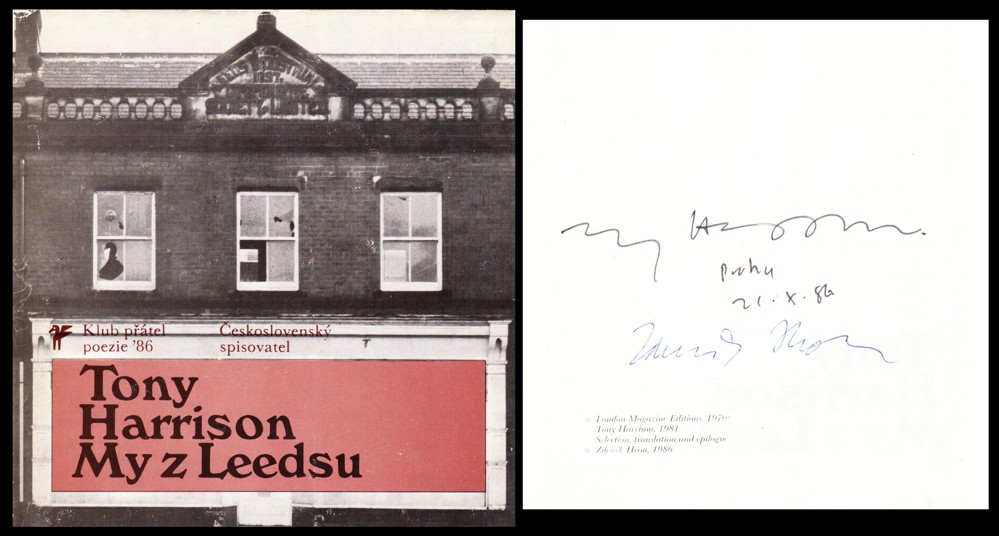 Klub přátel
poezie '86
Československý
spisovatel
Tony
Harrison
My z Leedsu
Tony Harrison.
Praha
21. X. 86
© London Magazine Editions, 1970;
Tony Harrison, 1981
Selection, translation and epilogue
© Zdeněk Hron, 1986